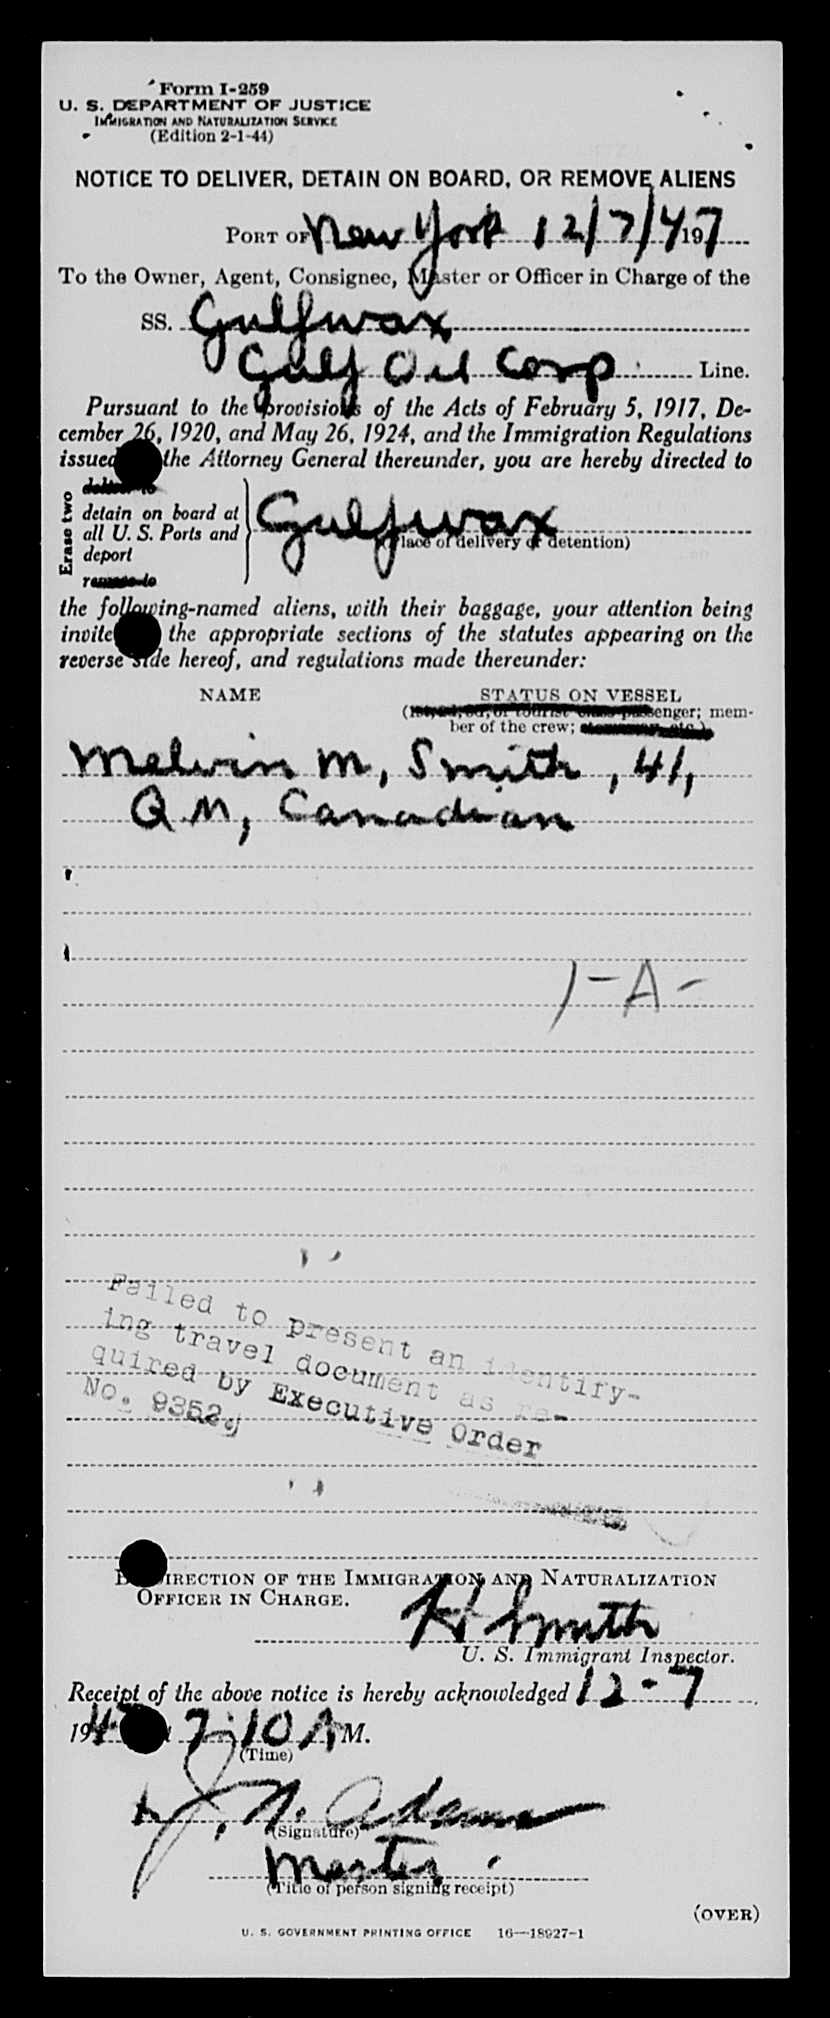 Form I-259
U. S. DEPARTMENT OF JUSTICE
IMMIGRATION AND NATURALIZATION SERVICE
(Edition 2-1-44)
NOTICE TO DELIVER, DETAIN ON BOARD, OR REMOVE ALIENS
PORT OF New York 12/7/4 197
To the Owner, Agent, Consignee, Master or Officer in Charge of the
SS. Gulfwax
Gulf Oil Corp Line.
Pursuant to the provisions of the Acts of February 5, 1917, De-
cember 26, 1920, and May 26, 1924, and the Immigration Regulations
issued the Attorney General thereunder, you are hereby directed to
Erase two
deliver to
detain on board at
all U. S. Ports and
deport
remove to
Gulfwax
(Place of delivery or detention)
the following-named aliens, with their baggage, your attention being
invite the appropriate sections of the statutes appearing on the
reverse side hereof, and regulations made thereunder:
NAME STATUS ON VESSEL
(1st, 2d, or tourist class passenger; mem-
ber of the crew;
Melvin M, Smith, 41,
QM, Canadian
1-A-
Failed to present an identify-
ing travel document as re-
quired by Executive Order
No. 9352.
DIRECTION OF THE IMMIGRATION AND NATURALIZATION
OFFICER IN CHARGE.
H Smith
U. S. Immigrant Inspector.
Receipt of the above notice is hereby acknowledged 12-7
194 7:10 A M.
(Time)
J. N. Adams
(Signature)
Master
(Title of person signing receipt)
(OVER)
U. S. GOVERNMENT PRINTING OFFICE 16—18927-1